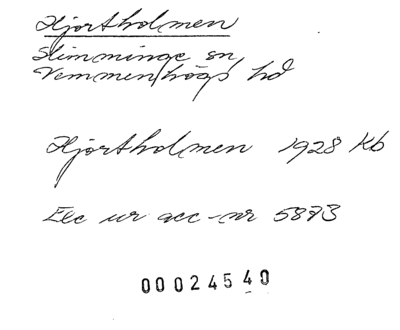 Hjortholmen
Slimminge sn
Vemmenhögs hd
Hjortholmen 1928 Kb
Exc ur acc-nr 5873
00024540